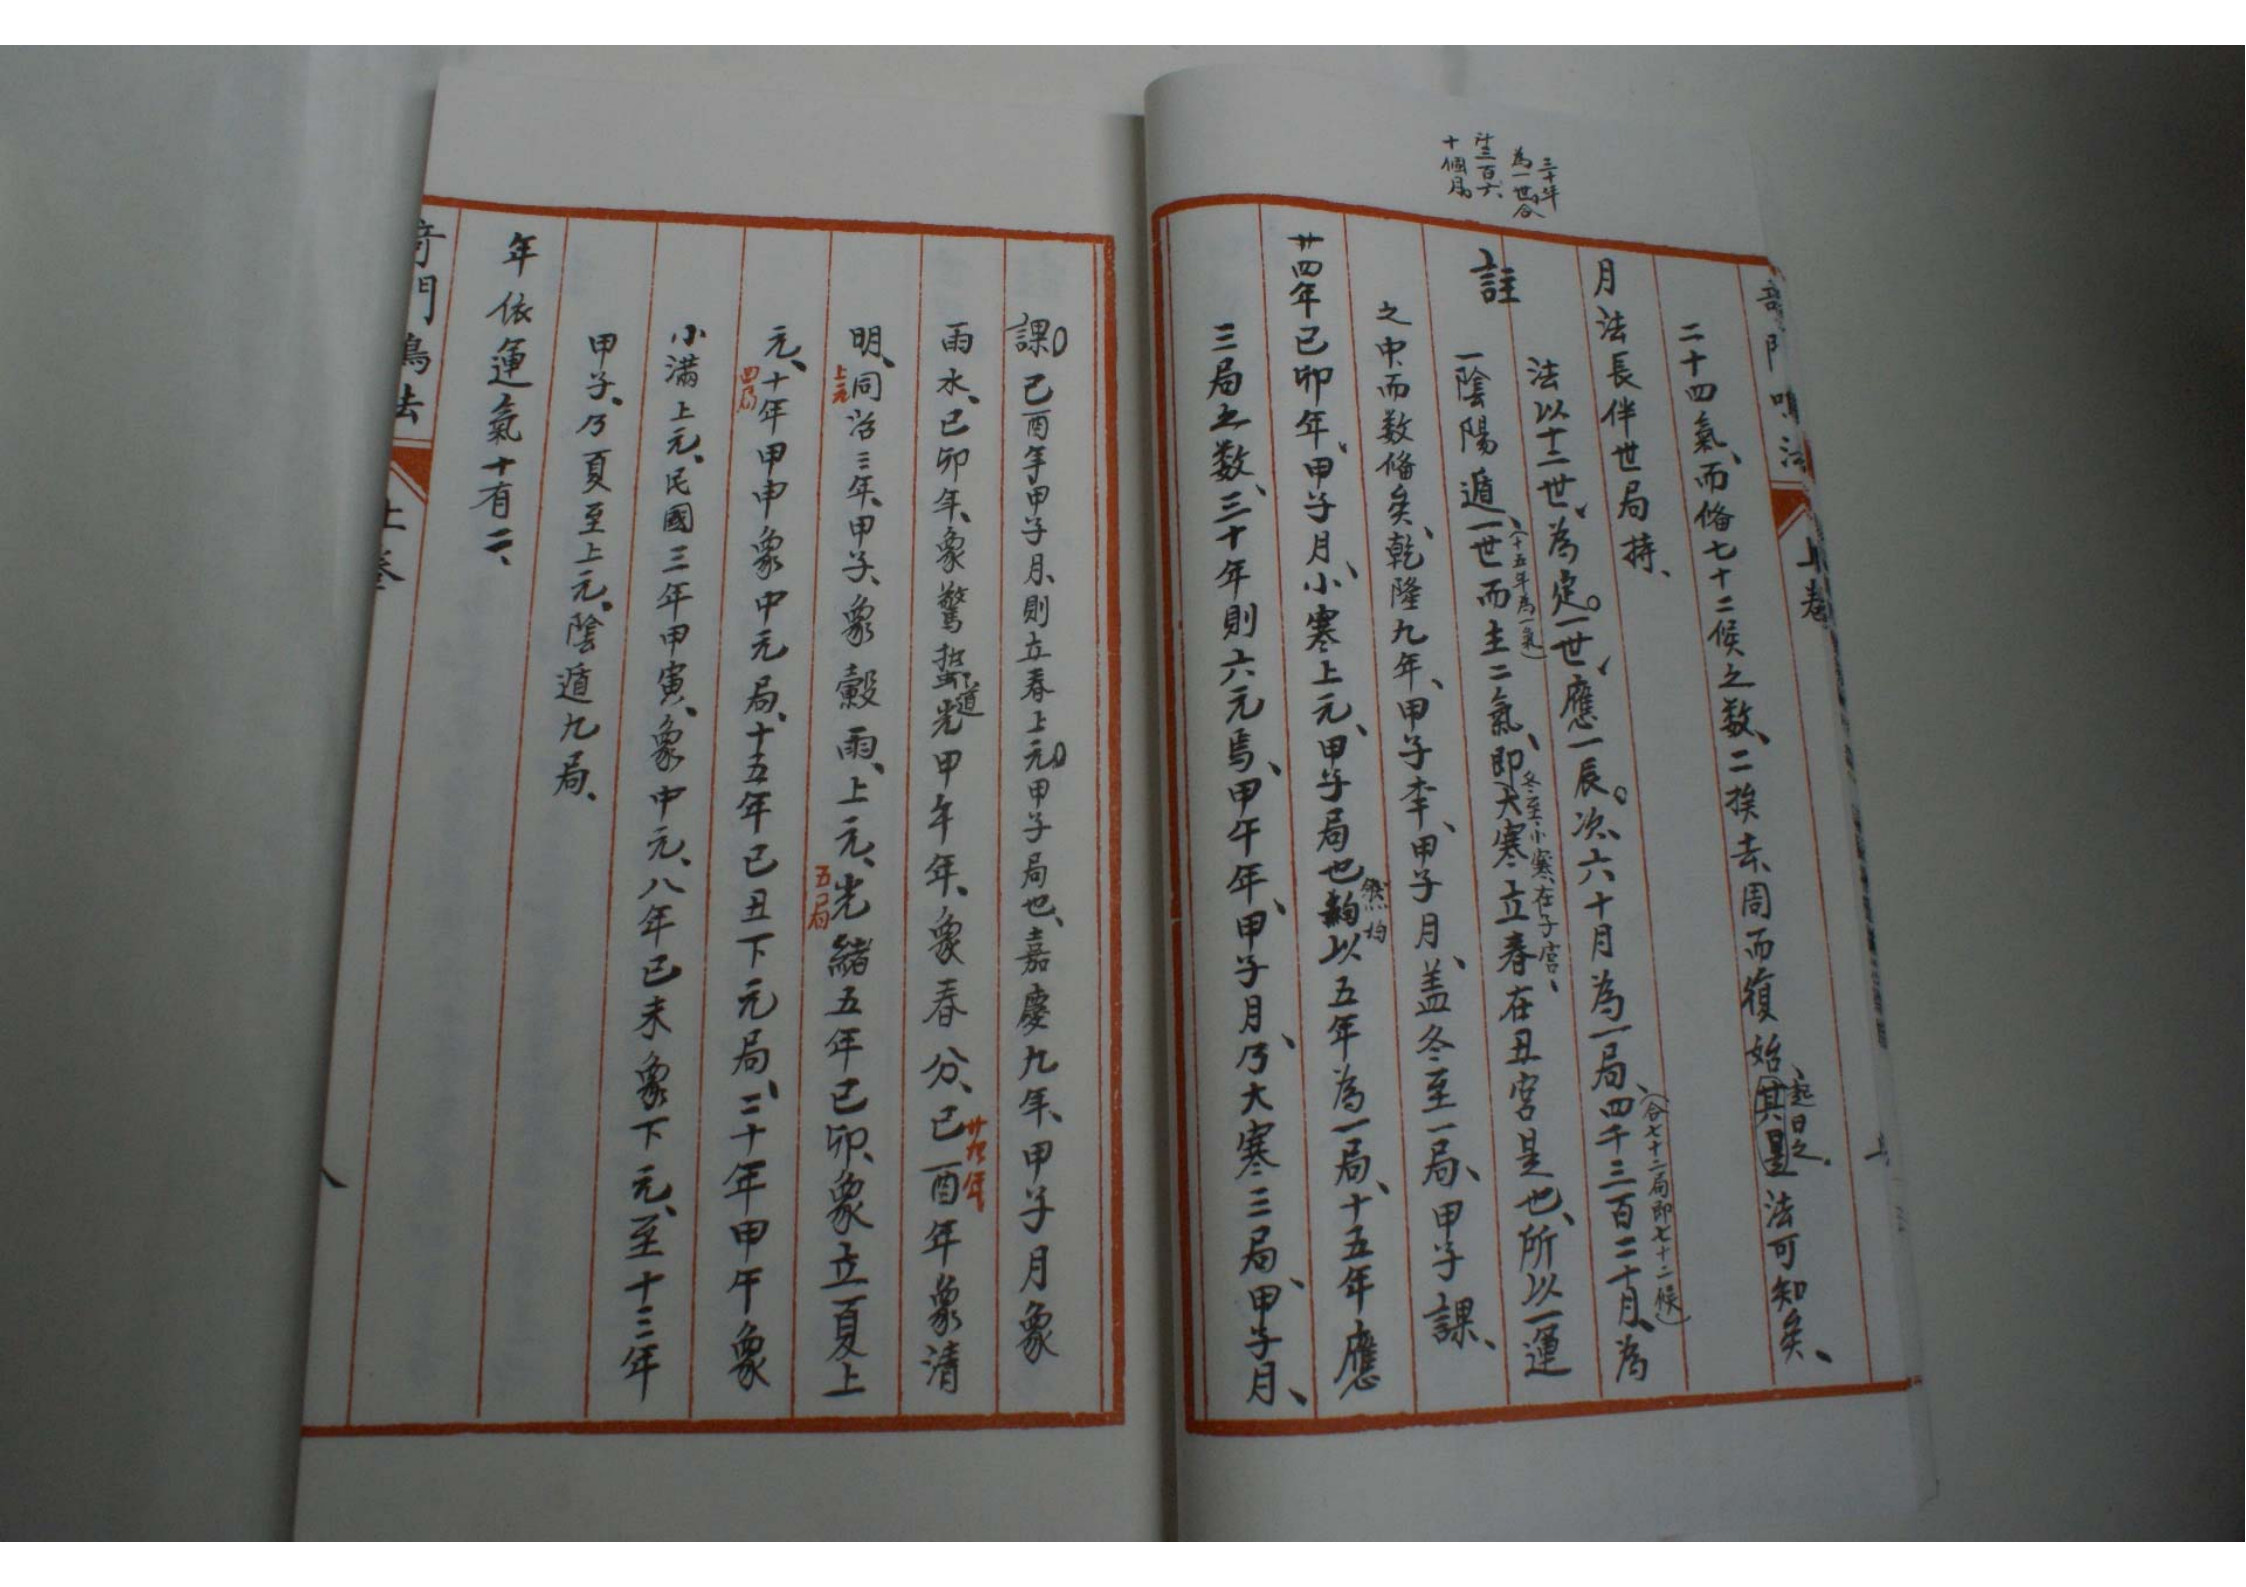 三十年
為一世合
計三百六
十個月
奇門鳴法
上卷
二十四氣、而俻七十二候之数、二挨去周而復始、其是法可知矣、
起日之
月法長伴世局持、
法以十二世、為定。一世、應一辰。次、六十月為一局、四千三百二十月、為
(合七十二局即七十二候)
註
一陰陽遁、一世而主二氣、即大寒立春在丑宮是也、所以一運
(十五年為一氣)
冬至小寒在子宮、
之中、而数俻矣、乾隆九年、甲子李、甲子月、盖冬至一局、甲子課、
廿四年己卯年、甲子月、小寒上元、甲子局也、以五年為一局、十五年應
然均
三局之数、三十年則六元焉、甲午年、甲子月、乃大寒三局、甲子月、
課、己酉年甲子月、則立春上元、甲子局也、嘉慶九年、甲子月象
雨水、己卯年、象驚蟄、光甲午年、象春分、己酉年象清
道
廿九年
明、同治三年、甲子、象穀雨、上元、光緒五年己卯、象立夏上
上元
五局
元、十年甲申象中元局、十五年己丑下元局、二十年甲午象
四局
小滿上元、民國三年甲寅、象中元、八年己未象下元、至十三年
甲子、乃夏至上元、陰遁九局、
年依運氣十有二、
奇門鳴法
上卷
八